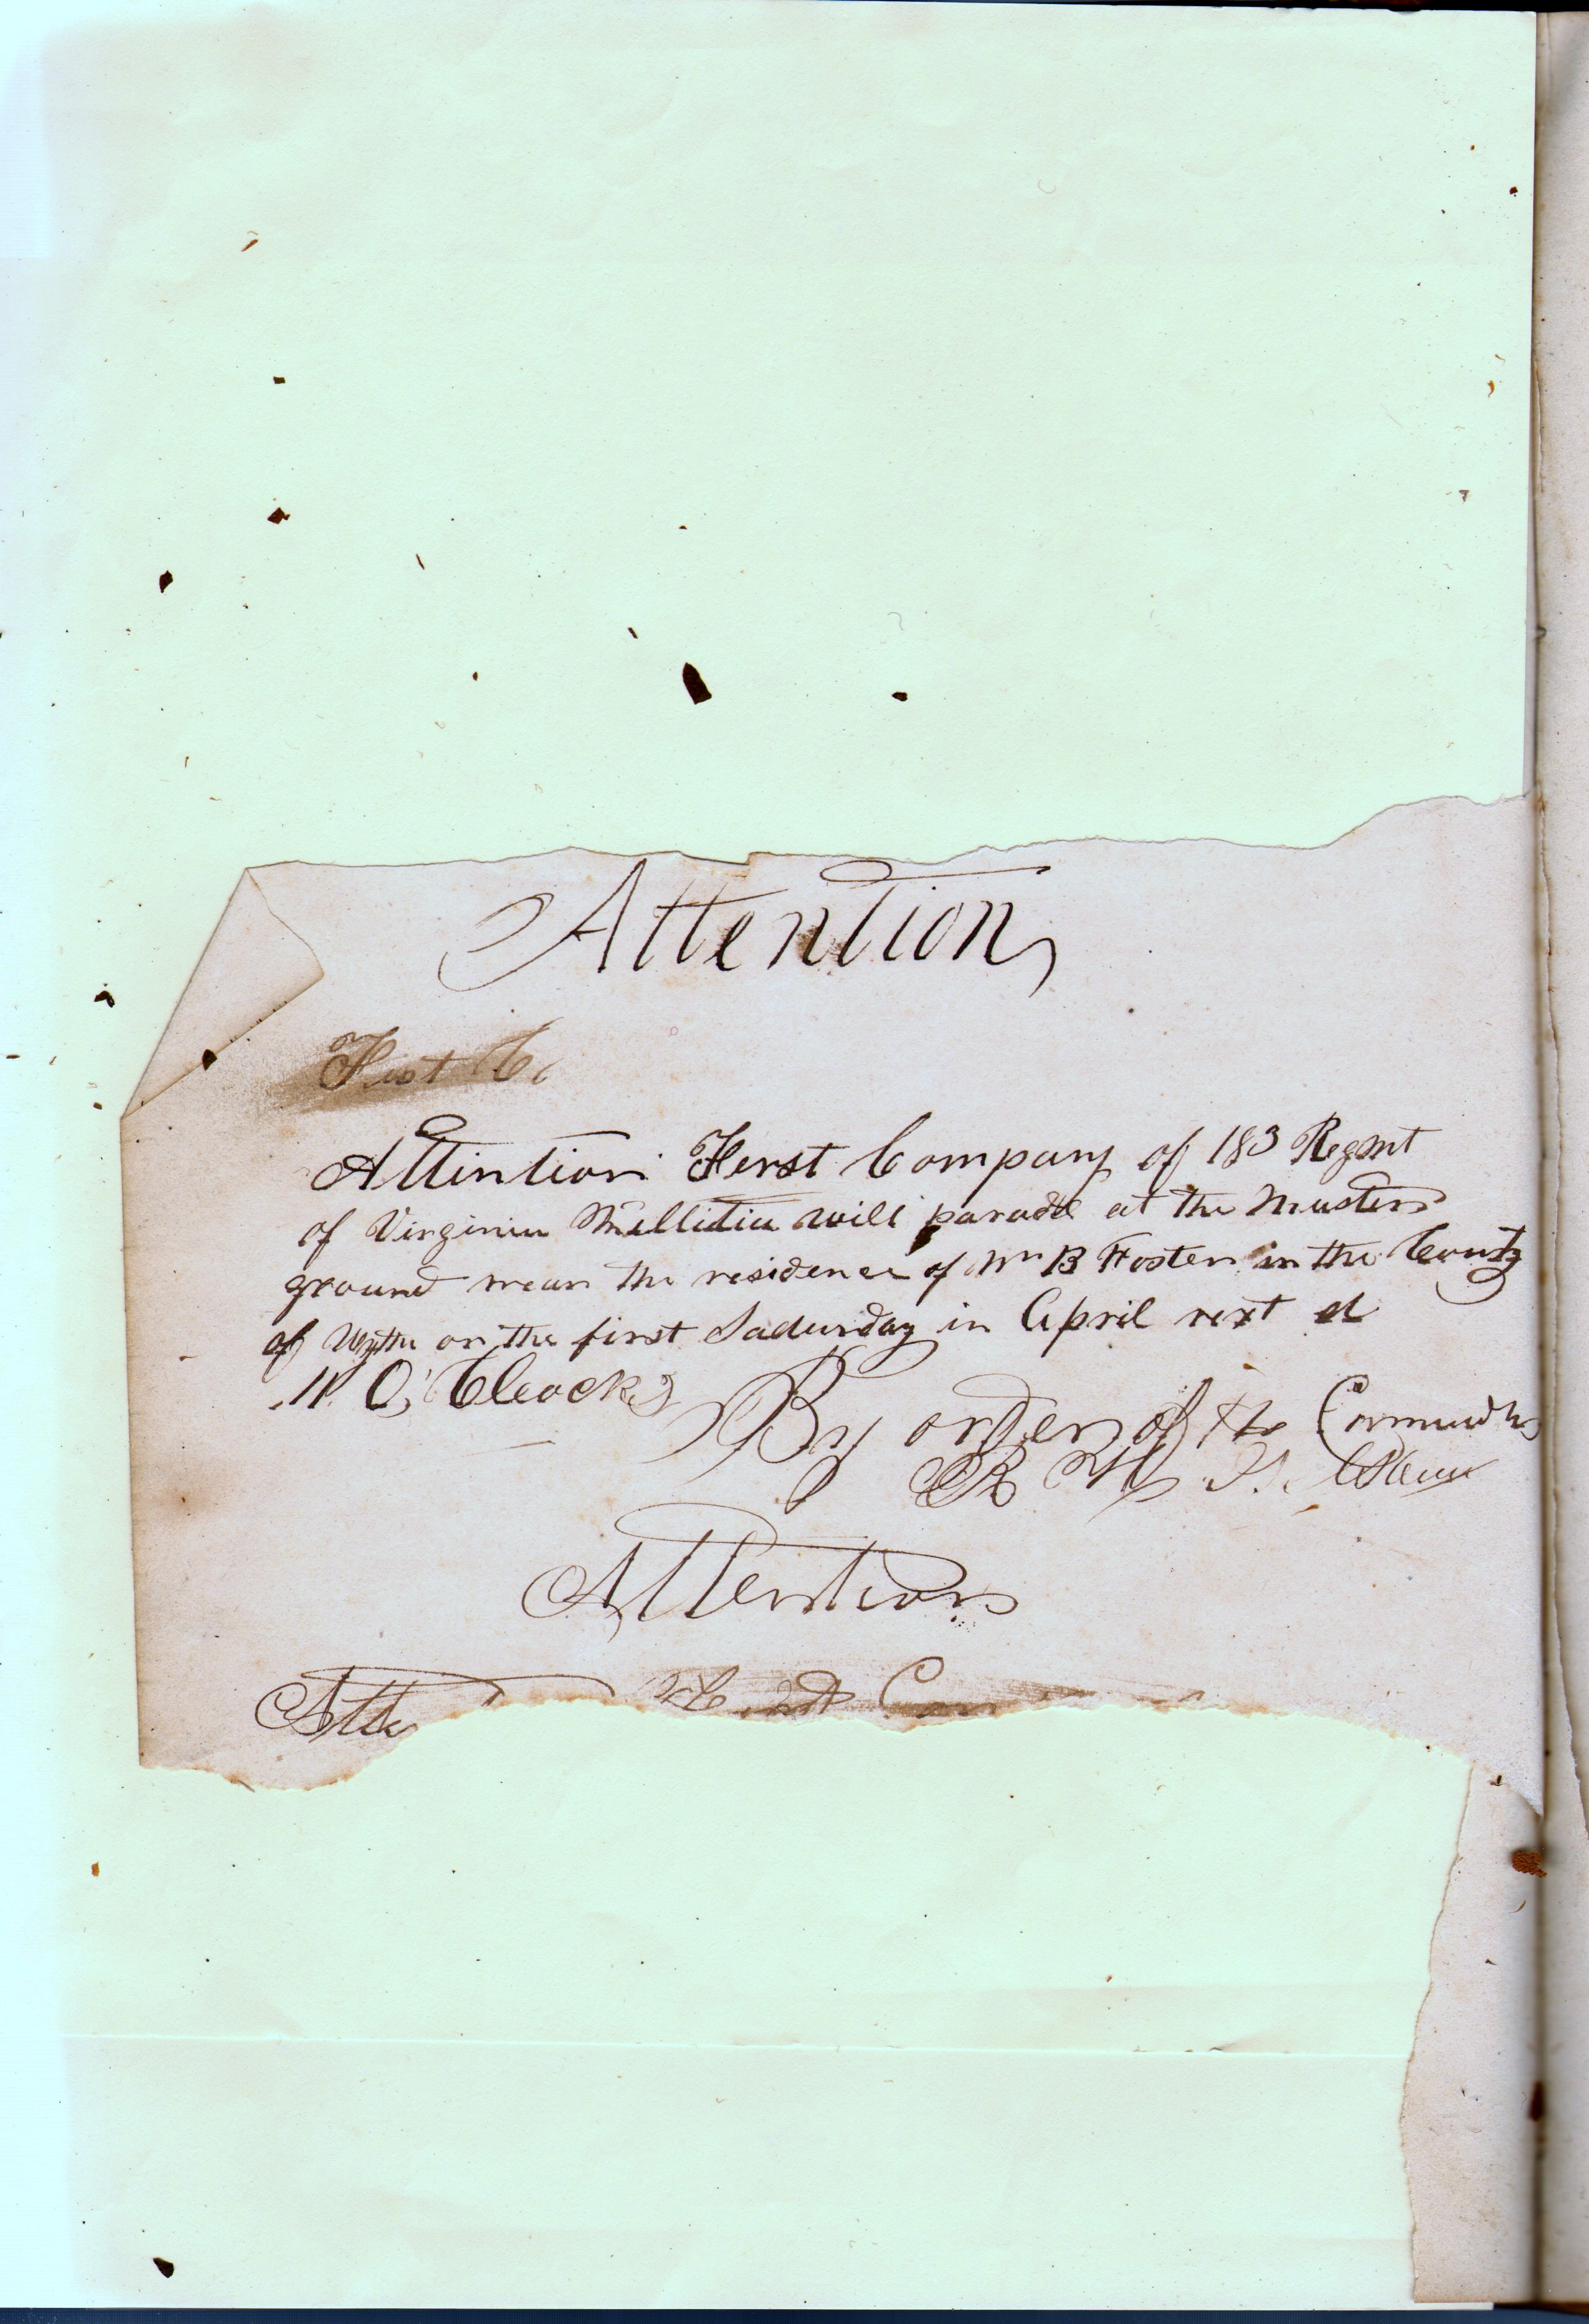 Attention
First Co
Attintion Ferst Company of 183 Regmt
of Virginia Millitia will parade at the Muster
ground near the residence of Wm B Foster in the County
of Wythe on the first Saturday in April next at
11 O,Clock
By order of the
R H
Attention
Atte